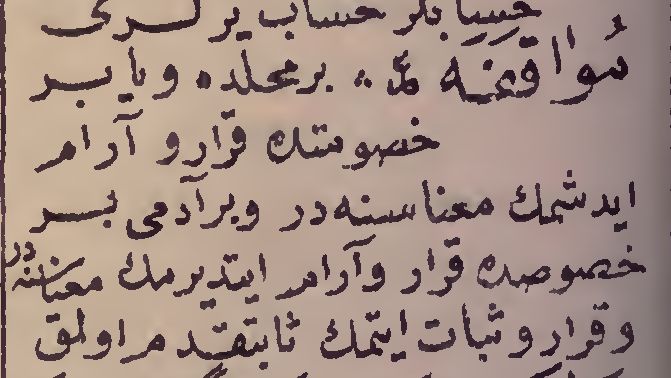 حسیبا بلر حساب یر لری
مُواقفه مّ بر محلده ویا بر
خصوصده قرار و آرام
ایدشمك معناسنه در وبر آدمی بر
خصوصده قرار وآرام ایتدیرمك معناسنه در
وقرار وثبات ایتمك ثابتقدم اولق